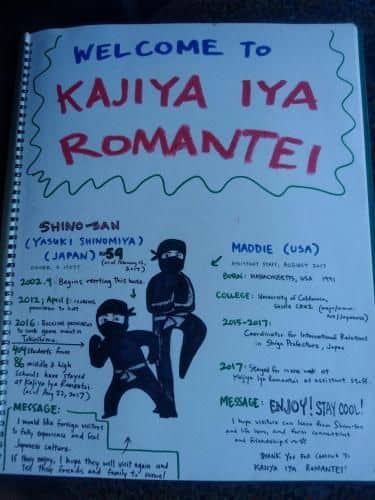 WELCOME TO
KAJIYA IYA
ROMANTEI
SHINO-SAN
(YASUKI SHINOMIYA)
(JAPAN) 54
(as of February 12, 2017)
2002.9: Begins renting this house.
2012, April:
2016: Received permission
to
Tokushima.
404 students from
86 middle & high
schools have stayed
at Kajiya Iya Romantei
(as of Aug 22, 2017)
MESSAGE:
I would like foreign visitors
to fully experience and feel
Japanese culture.
If they enjoy, I hope they will visit again and
tell their friends and family to come!
MADDIE (USA)
ASSISTANT STAFF, AUGUST 2017
BORN: MASSACHUSETTS, USA 1991
COLLEGE: University of California,
Santa Cruz
2015-2017:
Coordinator for International Relations
in Shiga Prefecture, Japan
2017: Stayed for
Kajiya Iya Romantei as assistant staff
MESSAGE: ENJOY! STAY COOL!
I hope visitors can learn from Shino-san
and life here, and form connections
and friendships
THANK YOU FOR COMING TO
KAJIYA IYA ROMANTEI!